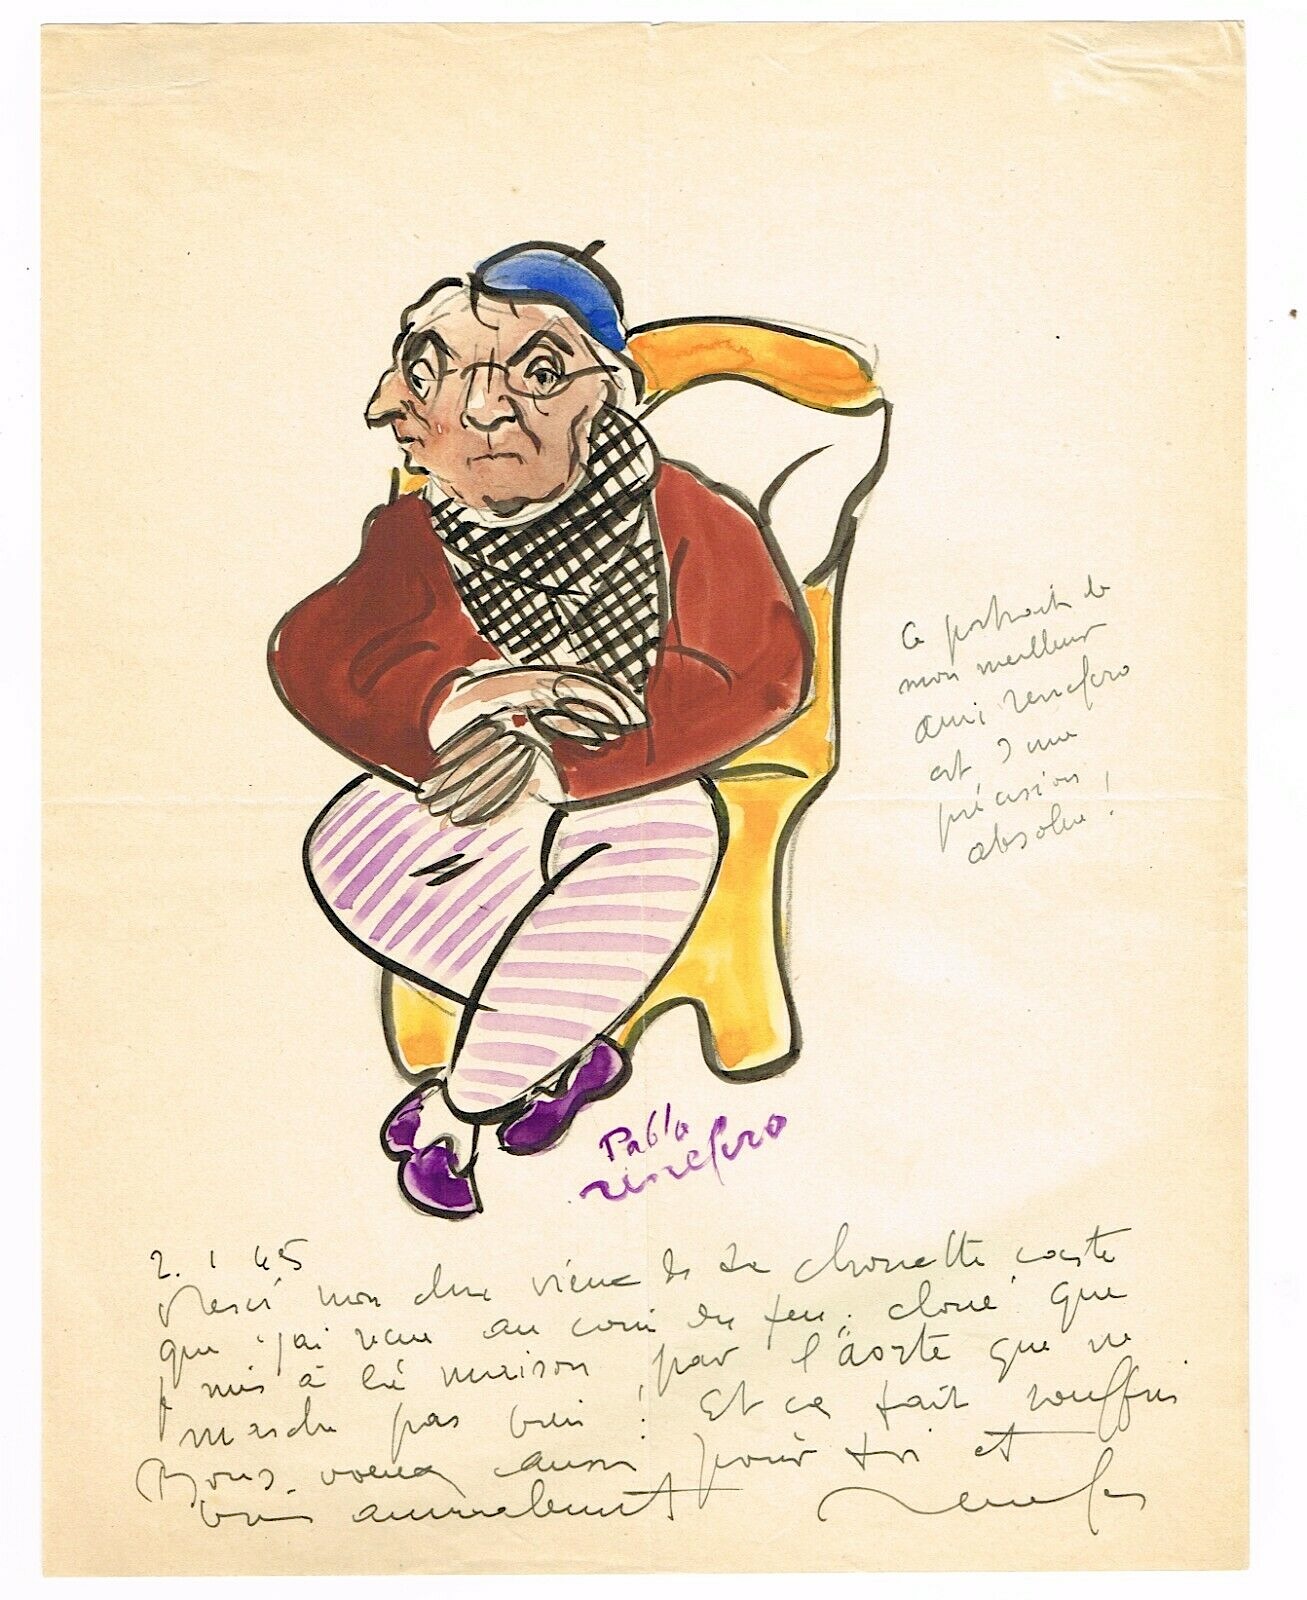 Ce portrait de
mon meilleur
ami renefero
est d'une
précision
absolue!
Pablo
renefero
2. 1 45
Merci mon cher vieux de ta chouette carte
que j'ai reçue au coin du feu. cloué que
je suis à la maison par l'aorte que ne
marche pas bien! Et ça fait souffrir
Bons voeux aussi pour toi et
bien amicalement Renefer